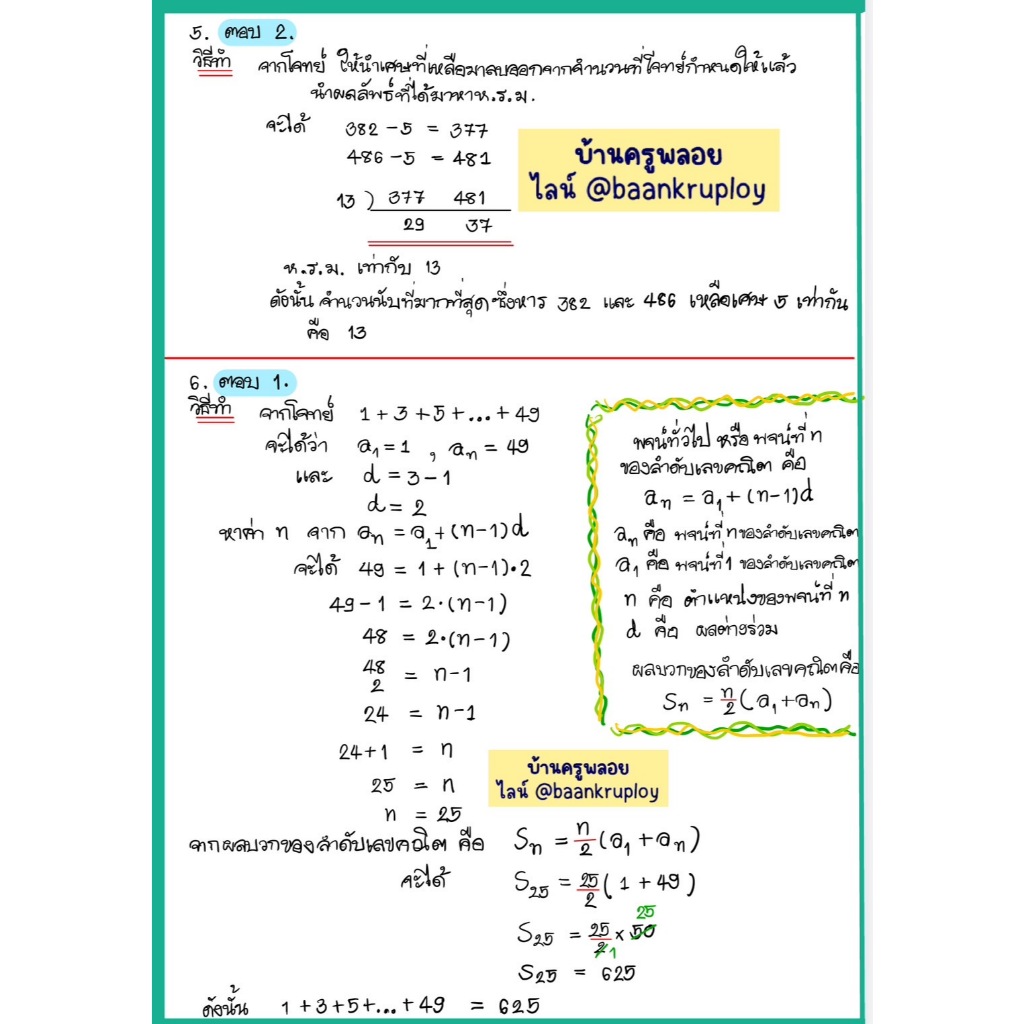 5. ตอบ 2.
วิธีทำ จากโจทย์ ให้นำเศษที่เหลือมาลบออกจากจำนวนที่โจทย์กำหนดให้แล้ว
นำผลลัพธ์ที่ได้มาหาห.ร.ม.
จะได้ 382 - 5 = 377
486 - 5 = 481
บ้านครูพลอย
ไลน์ @baankruploy
13 ) 377 481
29 37
ห.ร.ม. เท่ากับ 13
ดังนั้น จำนวนนับที่มากที่สุดซึ่งหาร 382 และ 486 เหลือเศษ 5 เท่ากัน
คือ 13
6. ตอบ 1.
วิธีทำ จากโจทย์ 1 + 3 + 5 + ... + 49
จะได้ว่า a₁ = 1 , aₙ = 49
และ d = 3 - 1
d = 2
หาค่า n จาก aₙ = a₁ + (n-1)d
จะได้ 49 = 1 + (n-1)•2
49 - 1 = 2•(n-1)
48 = 2•(n-1)
48/2 = n-1
24 = n-1
24+1 = n
25 = n
n = 25
พจน์ทั่วไป หรือ พจน์ที่ n
ของลำดับเลขคณิต คือ
aₙ = a₁ + (n-1)d
aₙ คือ พจน์ที่ n ของลำดับเลขคณิต
a₁ คือ พจน์ที่ 1 ของลำดับเลขคณิต
n คือ ตำแหน่งของพจน์ที่ n
d คือ ผลต่างร่วม
ผลบวกของลำดับเลขคณิตคือ
Sₙ = n/2 (a₁ + aₙ)
บ้านครูพลอย
ไลน์ @baankruploy
จากผลบวกของลำดับเลขคณิต คือ Sₙ = n/2 (a₁ + aₙ)
จะได้ S₂₅ = 25/2 ( 1 + 49 )
25
S₂₅ = 25/2 × 50
1
S₂₅ = 625
ดังนั้น 1 + 3 + 5 + ... + 49 = 625